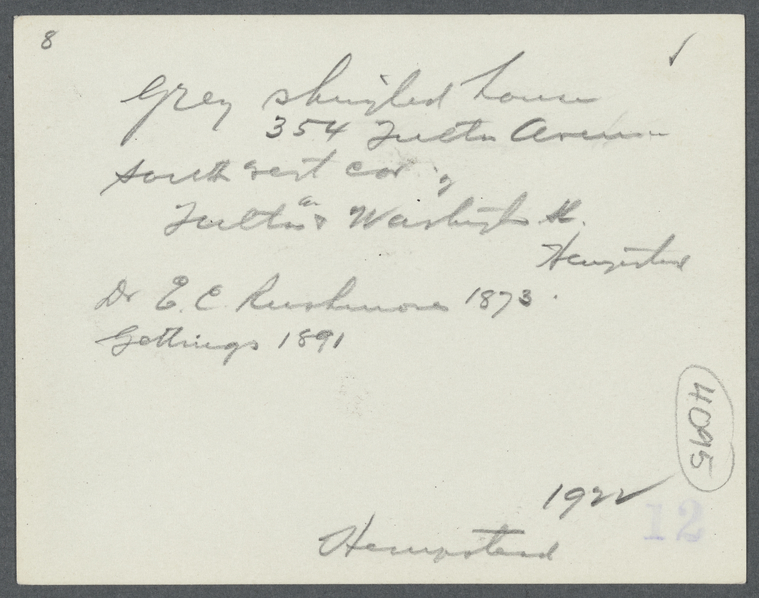 8
Grey shingled house
354 Fulton Avenue
south west cor of
Fulton av & Washington St.
Hempstead
Dr E. C. Rushmore 1873.
Gettings 1891
4095
1922
12
Hempstead